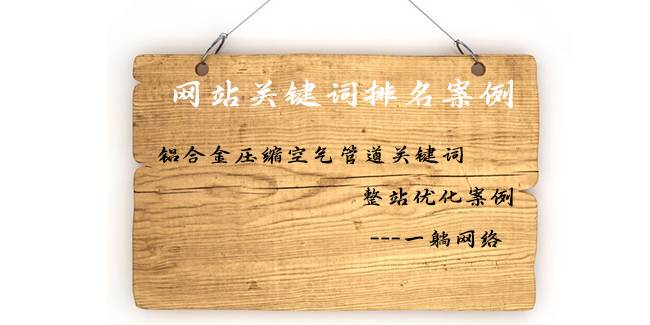 网站关键词排名案例
铝合金压缩空气管道关键词
整站优化案例
---一躺网络